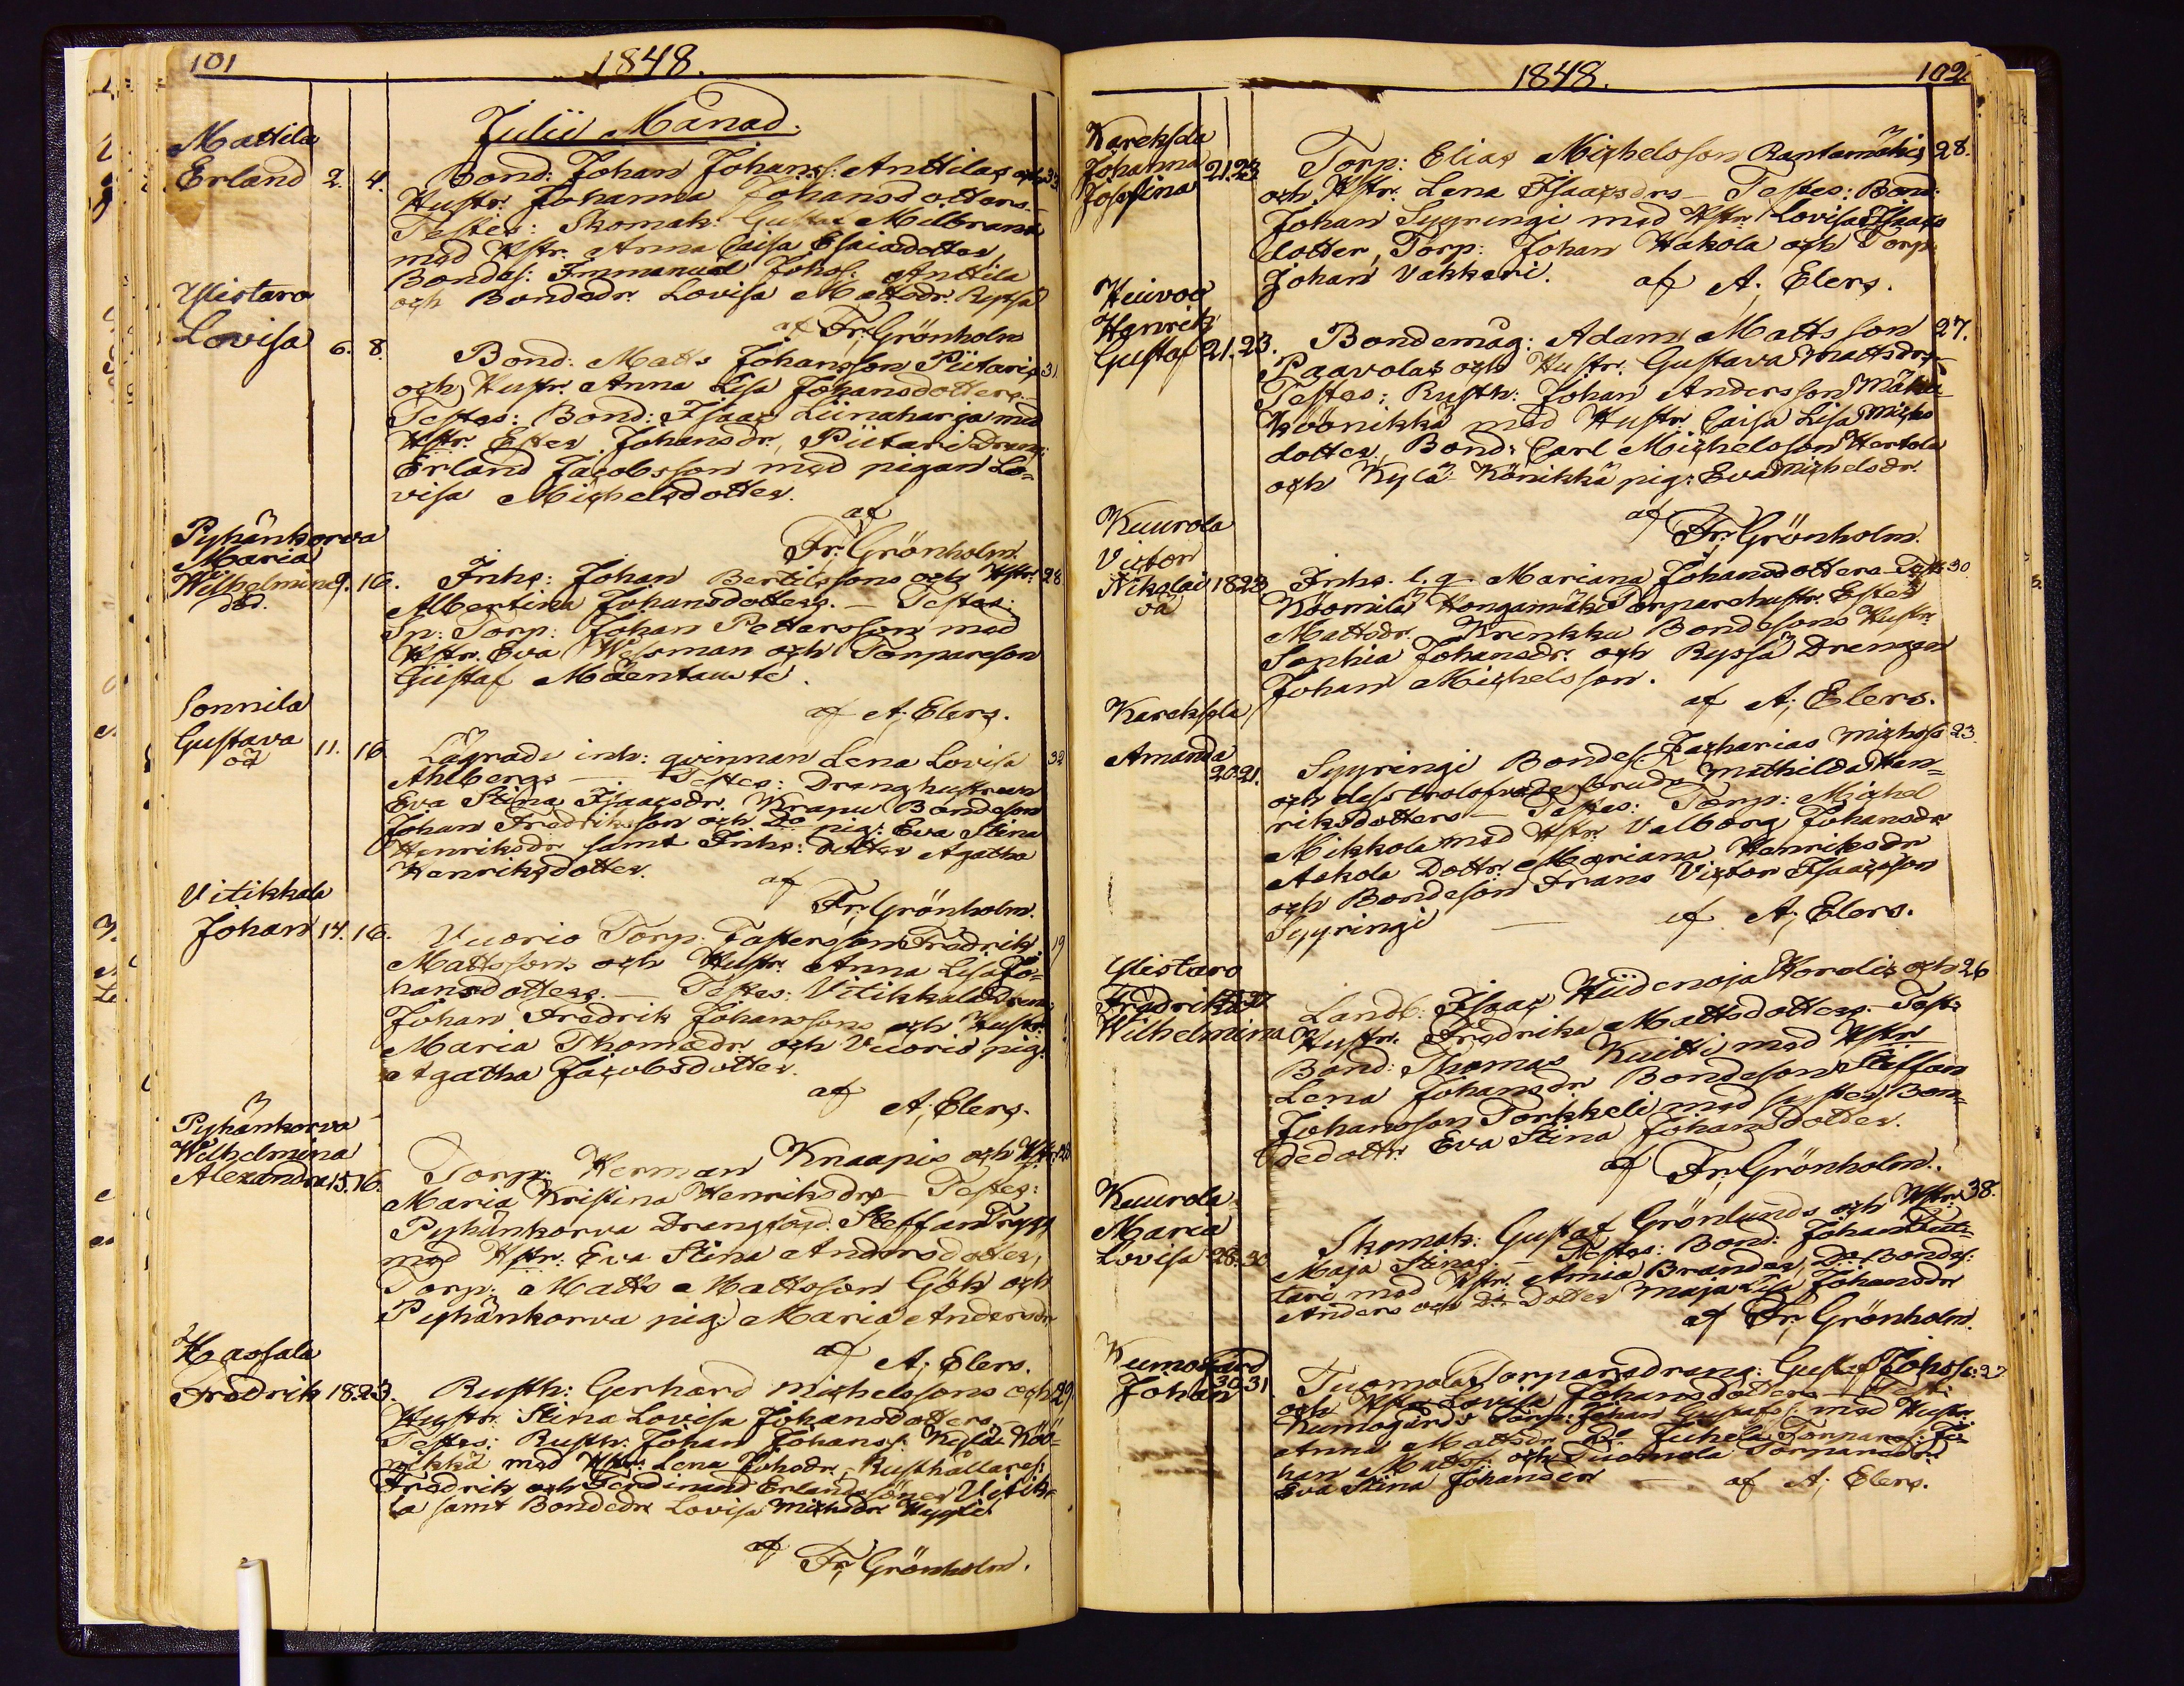 101
1848.
Julii Månad.
Mattila
Erland 2. 4. Bond: Johan Johanss: Anttilas och 33
Hustr. Johanna Johansdotters.
Testes: Skomak: Gustaf Milbrand
med Hstr. Anna Caisa Esaiædotter,
Bondes: Immanuel Johss: Anttila
och Bondedr. Lovisa Mattsdr. Ryssä
af Fr; Grönholm
Ylistaro
Lovisa 6. 8. Bond: Matts Johansson Piitaris 31.
och Hustr. Anna Lisa Johansdotters.
Testes: Bond: Isaac Liinaharja med
Hstr. Ester Johansdr, Piitari dreng:
Erland Jacobsson med pigan Lo=
visa Michelsdotter.
af
Fr; Grönholm.
Pyhänkorva
Maria
Wilhelmina 9. 16. Inhs: Johan Bertilssons och Hstr. 28
död. Albertina Johansdotters. — Testes:
Sp: Torp: Johan Pettersson med
Hstr. Eva Wessman och Torpareson
Gustaf Mäentausta.
af A; Elers.
Sonnila
Gustava 11. 16 Lägrade inh: qvinnan Lena Lovisa 32
oä Ahlbergs — Testes: Dranghustrun
Eva Stina Isaacsdr. Krapu Bondeson
Johan Fredriksson och Do pig: Eva Stina
Henriksdr samt Inhs: dotter Agatha
Henriksdotter.
af
Fr; Grönholm.
Vitikkala
Johan 14. 16. Vuorio Torp: Fredrik 19
Mattssons och Hustr. Anna Lisa Jo=
hansdotters. — Testes: Vitikkala Dreng:
Johan Fredrik Johanssons och Hustr.
Maria Thomædr och Vuorio pig:
Agatha Jacobsdotter.
af
A; Elers.
Pyhänkorva
Wilhelmina
Alexandra 15. 16. Torp: Herman Knaapis och Hstr. 28
Maria Kristina Henriksdrs — Testes:
Pyhänkorva Steffan Trygg
med Hstr. Eva Stina Andersdotter,
Torp: Matts Mattsson Gök och
Pyhänkorva pig: Maria Andersdr
af
A; Elers.
Hassala
Fredrik 18. 23. Rusth: Gerhard Michelssons och 29
Hustr. Stina Lovisa Johansdotters
Testes: Rusth: Johan Johanss: Kylä Köö=
nikkä med Hstr: Lena Johsdr, Rusthållares:
Fredrik och Ferdinand Erlandssöner Uitik=
la samt Bondedr Lovisa Michsdr
af
Fr; Grönholm.
1848. 102.
Kareksela
Johanna 21. 23 Torp: Elias Michelsson Rantamäkis 28.
Josefina och Hstr. Lena Isaacsdrs — Testes: Bond:
Johan Syyringi med Hstr: Lovisa Isaacs
dotter, Torp: Johan Hakola och Torp:
Johan Vakkari. af A; Elers.
Heinoo
Henrik
Gustaf 21. 23. Bondemåg: Adam Mattsson 27.
Paavolas och Hustr. Gustava Mattsdrs —
Testes: Rusth: Johan Andersson Mäki
Köönikkä med Hustr. Caisa Lisa Michs
dotter, Bond: Carl Michelsson Hertola
och Kylä: Könikkä pig: Eva Michelsdr.
af
Fr; Grönholm.
Kuurola
Victor
Nikolai 18. 23 Inhs. l. q. Mariana Johansdotters Test: 30
oä Köömilä Kongamäki Torparehustr. Ester
Mattsdr. Krenkku Bondesons Hustr.
Sophia Johansdr. och Ryssä Drengen
Johan Michelsson.
af A; Elers.
Kareksela
Amanda
20. 21. Syyringi Bondes: Zacharias Michss 23.
och dess trolofvade brud Mathilda Hen=
riksdotters — Testes: Torp: Michel
Mikkola med Hstr Valborg Johansdr
Askola Dottr. Mariana Henriksdr
och Bondeson Frans Victor Isaacsson
Syyringi — af A; Elers.
Ylistaro
Fredrika
Wilhelmina Landb: Isaac Hiidenoja Hordis och 26
Hustr. Fredrika Mattsdotters. Test:
Bond: Thomas Kuitti med Hstr
Lena Johansdr Bondeson Steffan
Johansson Porkkeli med syster Bon=
dedottr. Eva Stina Johansdotter.
af Fr; Grönholm.
Kuurola
Maria
Lovisa 28. 30 Skomak: Gustaf Grönlunds och Hstr. 38.
Maja Stinas. — Testes: Bond: Johan
tari med Hstr. Brander, Do Bondes:
Anders och Do Dotter Maja Lisa Johansdr
af Fr; Grönholm.
Kumogård
Johan 30. 31 Tuomola Torparedreng: Gustaf Johss: 27
och Hstr Lovisa Johansdotters — Test:
Kumogårds Torp: Johan Gustafs: med Hustr.
Anna Mattsdr, Do Juhela Torpares: Jo=
han Matss: och Tuomola Torparedr
Eva Stina Johansdr — af A; Elers.